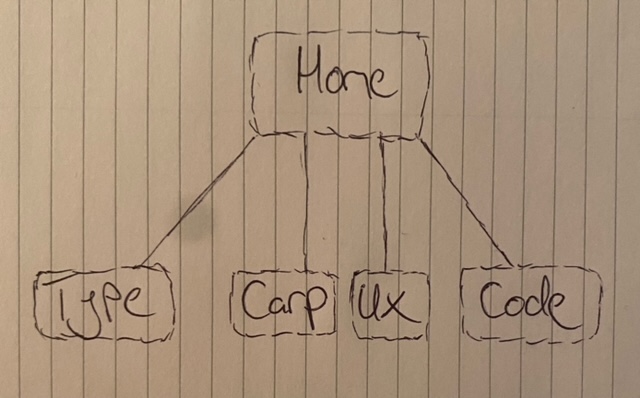 Home
Type
Carp
Ux
Code